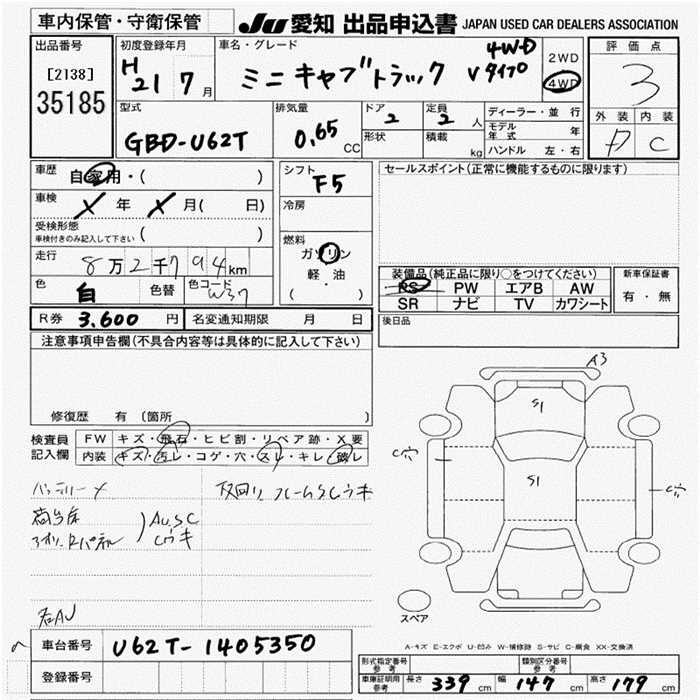 車内保管・守衛保管
JU 愛知 出品申込書 JAPAN USED CAR DEALERS ASSOCIATION
出品番号
[2138]
35185
初度登録年月
H 21 7 月
車名・グレード
ミニキャブトラック Vタイプ 4WD
2WD
4WD
評価点
3
外装 内装
D C
型式
GBD-U62T
排気量
0.65 CC
ドア 2
形状
定員 2 人
積載 kg
ディーラー・並行
モデル年式 年
ハンドル 左・右
車歴 自家用・( )
車検 X 年 X 月( 日)
受検形態
車検付きのみ記入して下さい ( )
走行 8万2千794km
色 白 色替 色コード W37
シフト F5
冷房
燃料
ガソリン
軽油
( ・ )
セールスポイント(正常に機能するものに限ります)
装備品(純正品に限り○をつけてください)
PS PW エアB AW
SR ナビ TV カワシート
新車保証書
有・無
R券 3,600 円 名変通知期限 月 日
後日品
注意事項申告欄(不具合内容等は具体的に記入して下さい)
修復歴 有(箇所 )
検査員記入欄
FW キズ・飛石・ヒビ割・リペア跡・X要
内装 キズ・汚レ・コゲ・穴・スレ・キレ・破レ
バッテリーメ
下回り フレームSCウキ
荷台床
アオリ、Rパネル
AU、SC
Cウキ
右AU
A3
S1
S1
C穴
C穴
スペア
A-キズ E-エクボ U-凹み W-補修跡 S-サビ C-腐食 XX-交換済
車台番号 U62T-1405350
登録番号
形式指定番号 参考
類別区分番号 参考
車庫証明用 参考 長さ 339 cm 幅 147 cm 高さ 179 cm